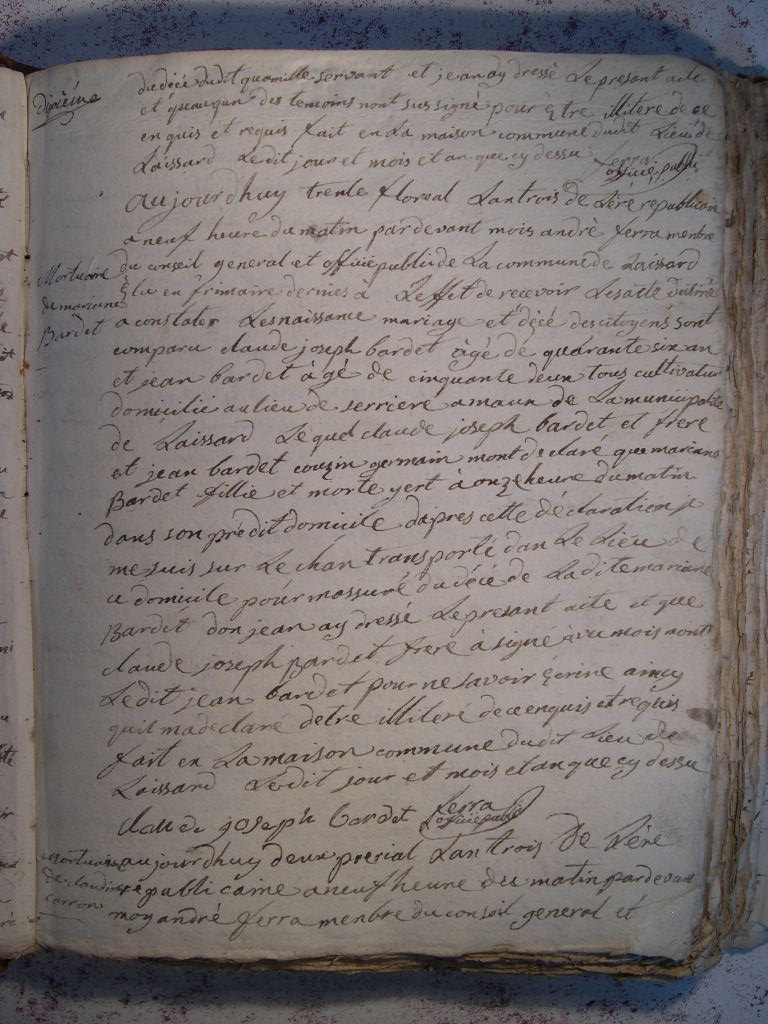 dixième
du décé dudit quamille servant et jean ay dressé Le presant acte
et queauqun des temoins nont sus signé pour être illiteré de ce
enquis et requis fait en La maison commune dudit Lieu de
Laissard Ledit jour et mois et an que cy dessu ferra officie public
aujourdhuy trente floreal Lan trois de Lére republicaine
a neuf heure du matin pardevant mois andré ferra menbre
Mortuaire de mariane Bardet
du conseil general et officie public de La commune de Laissard
Elu en frimaire dernies a Leffet de recevoir Les acte
a constater Les naissance mariage et décé des citoyens sont
comparu claude joseph bardet âgé de quarante six an
et jean bardet âgé de cinquante deux tous cultivateur
domicilié au lieu de serriere amaux de La municipalité
de Laissard Lequel claude joseph bardet et frere
et jean bardet couzin germain mont declaré que mariane
Bardet fillie et morte yert à onze heure du matin
dans son prédit domicile dapres cette déclaration je
me suis sur Le chan transporté dan Le Lieu de
ce domicile pour massuré du décé de Ladite mariane
Bardet don jean ay dressé Le presant acte et que
claude joseph Bardet frere à signé avec mois nont
Ledit jean bardet pour ne savoir écrire aincy
quil ma declaré detre illiteré de ce enquis et requis
fait en La maison commune dudit Lieu de
Laissard Ledit jour et mois et an que cy dessu
Claude joseph bardet ferra officie public
Mortuaire de claudine carron
aujourdhuy deux prerial Lan trois De Lére
republicaine a neuf heure du matin pardevant
moy andré ferra menbre du conseil general et